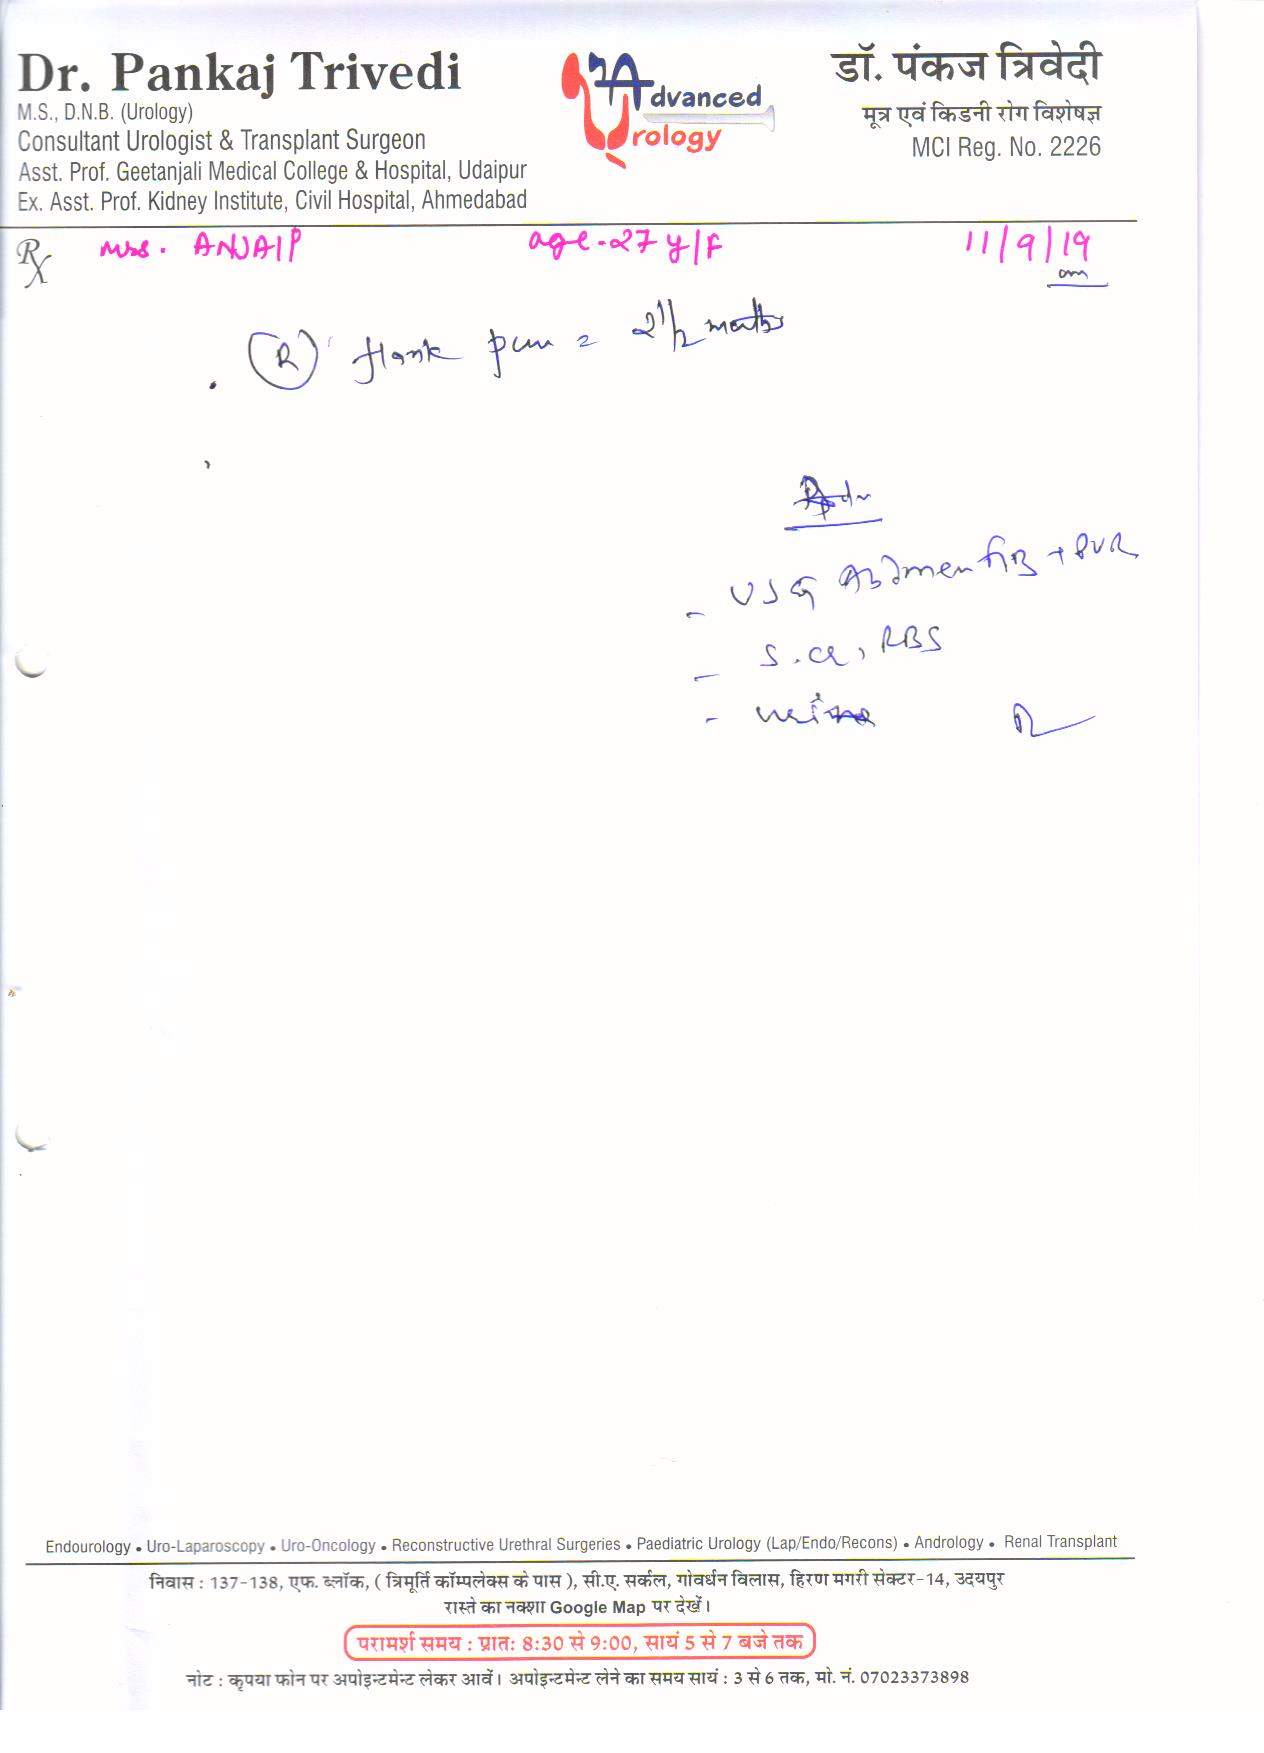 Dr. Pankaj Trivedi
M.S., D.N.B. (Urology)
Consultant Urologist & Transplant Surgeon
Asst. Prof. Geetanjali Medical College & Hospital, Udaipur
Ex. Asst. Prof. Kidney Institute, Civil Hospital, Ahmedabad
Advanced
Urology
डॉ. पंकज त्रिवेदी
मूत्र एवं किडनी रोग विशेषज्ञ
MCI Reg. No. 2226
Rx
age-27 y/F
11/9/19
(R) flank 2 1/2
- USG + PVR
- S.cr, RBS
- urine
Endourology • Uro-Laparoscopy • Uro-Oncology • Reconstructive Urethral Surgeries • Paediatric Urology (Lap/Endo/Recons) • Andrology • Renal Transplant
निवास : 137-138, एफ. ब्लॉक, ( त्रिमूर्ति कॉम्पलेक्स के पास ), सी.ए. सर्कल, गोवर्धन विलास, हिरण मगरी सेक्टर-14, उदयपुर
रास्ते का नक्शा Google Map पर देखें।
परामर्श समय : प्रातः 8:30 से 9:00, सायं 5 से 7 बजे तक
नोट : कृपया फोन पर अपोइन्टमेन्ट लेकर आवें। अपोइन्टमेन्ट लेने का समय सायं : 3 से 6 तक, मो. नं. 07023373898